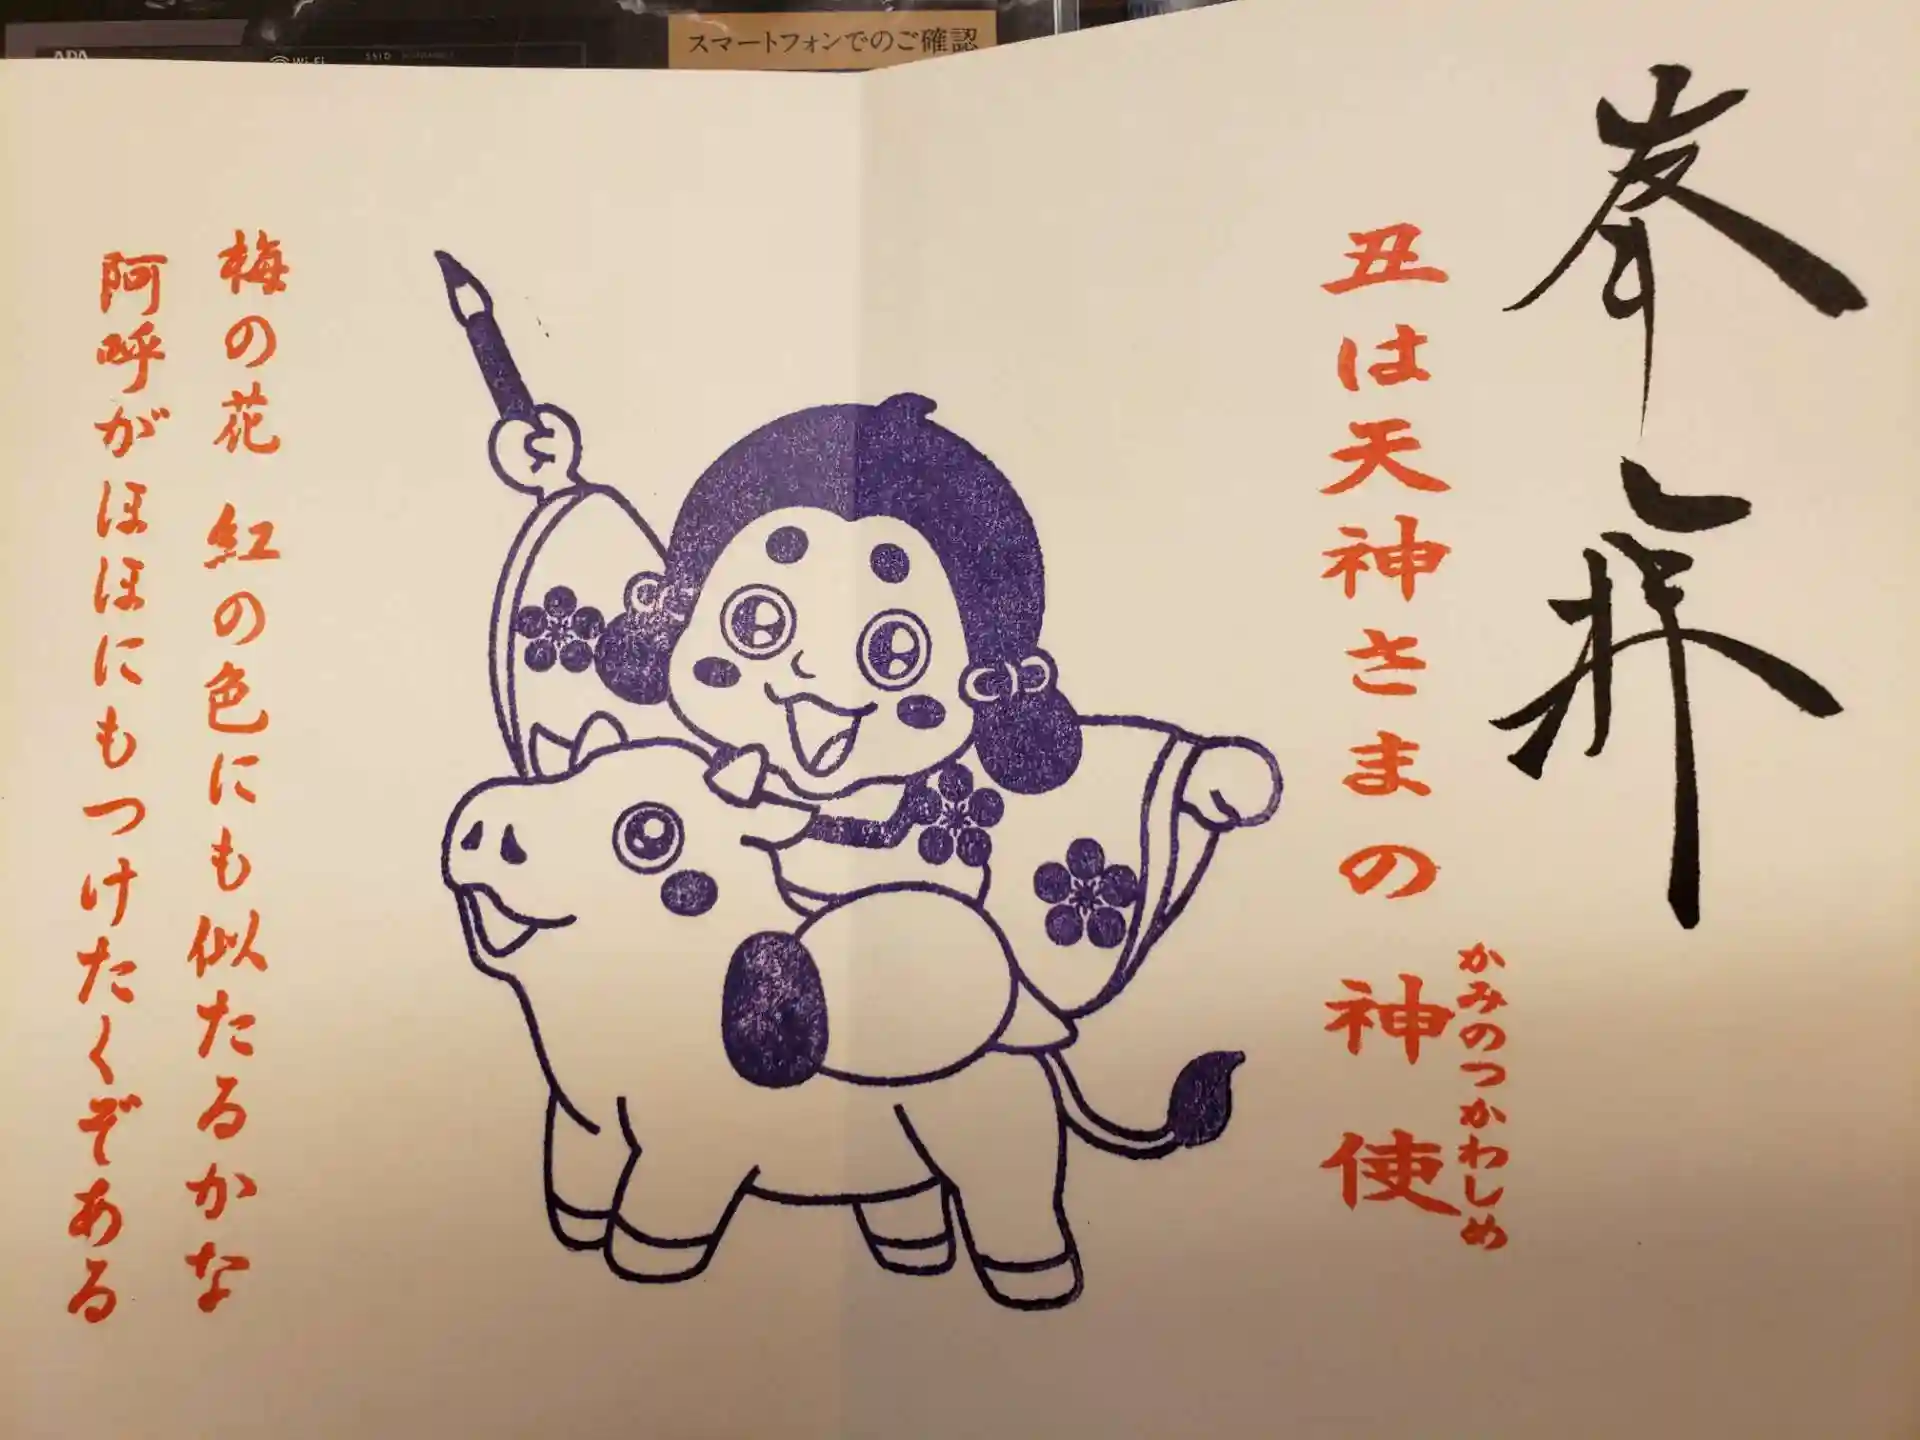 APA
Wi-Fi
SSID
スマートフォンでのご確認
奉拝
丑は天神さまの神使
かみのつかわしめ
梅の花 紅の色にも似たるかな
阿呼がほほにもつけたくぞある